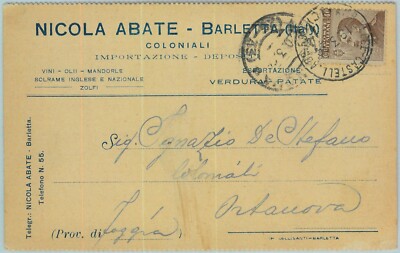 NICOLA ABATE - BARLETTA (Italy)
COLONIALI
IMPORTAZIONE - DEPOSITO
ESPORTAZIONE
VINI - OLII - MANDORLE
SOLFAME INGLESE E NAZIONALE
ZOLFI
VERDURA PATATE
Telegr.: NICOLA ABATE - Barletta.
Telefono N. 55.
Sig. Ignazio De Stefano
Coloniali
Ortanova
(Prov. di Foggia)